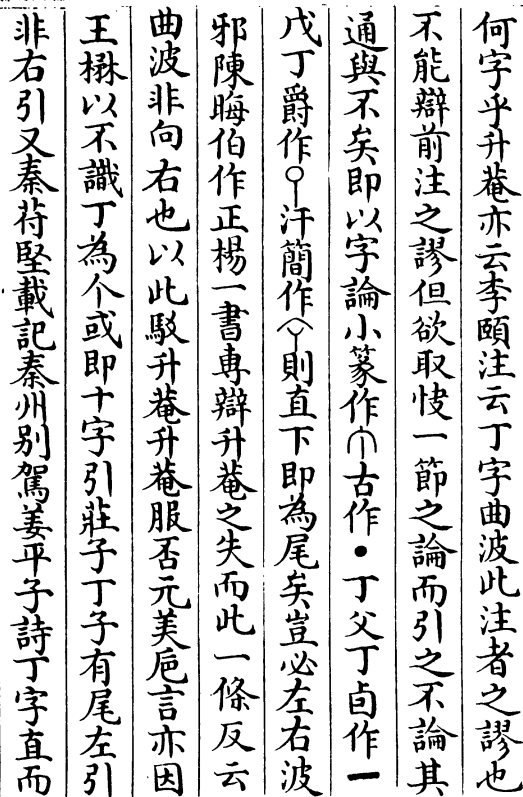 何字乎升菴亦云李頤注云丁字曲波此注者之謬也
不能辯前注之謬但欲取快一節之論而引之不論其
通與不矣即以字論小篆作古作●丁父丁卣作
戊丁爵作汗簡作則直下即為尾矣豈必左右波
邪陳晦伯作正楊一書專辯升菴之失而此一條反云
曲波非向右也以此駁升菴升菴服否元美巵言亦因
王楙以不識丁為个或即十字引莊子丁子有尾左引
非右引又秦苻堅載記秦州别駕姜平子詩丁字直而